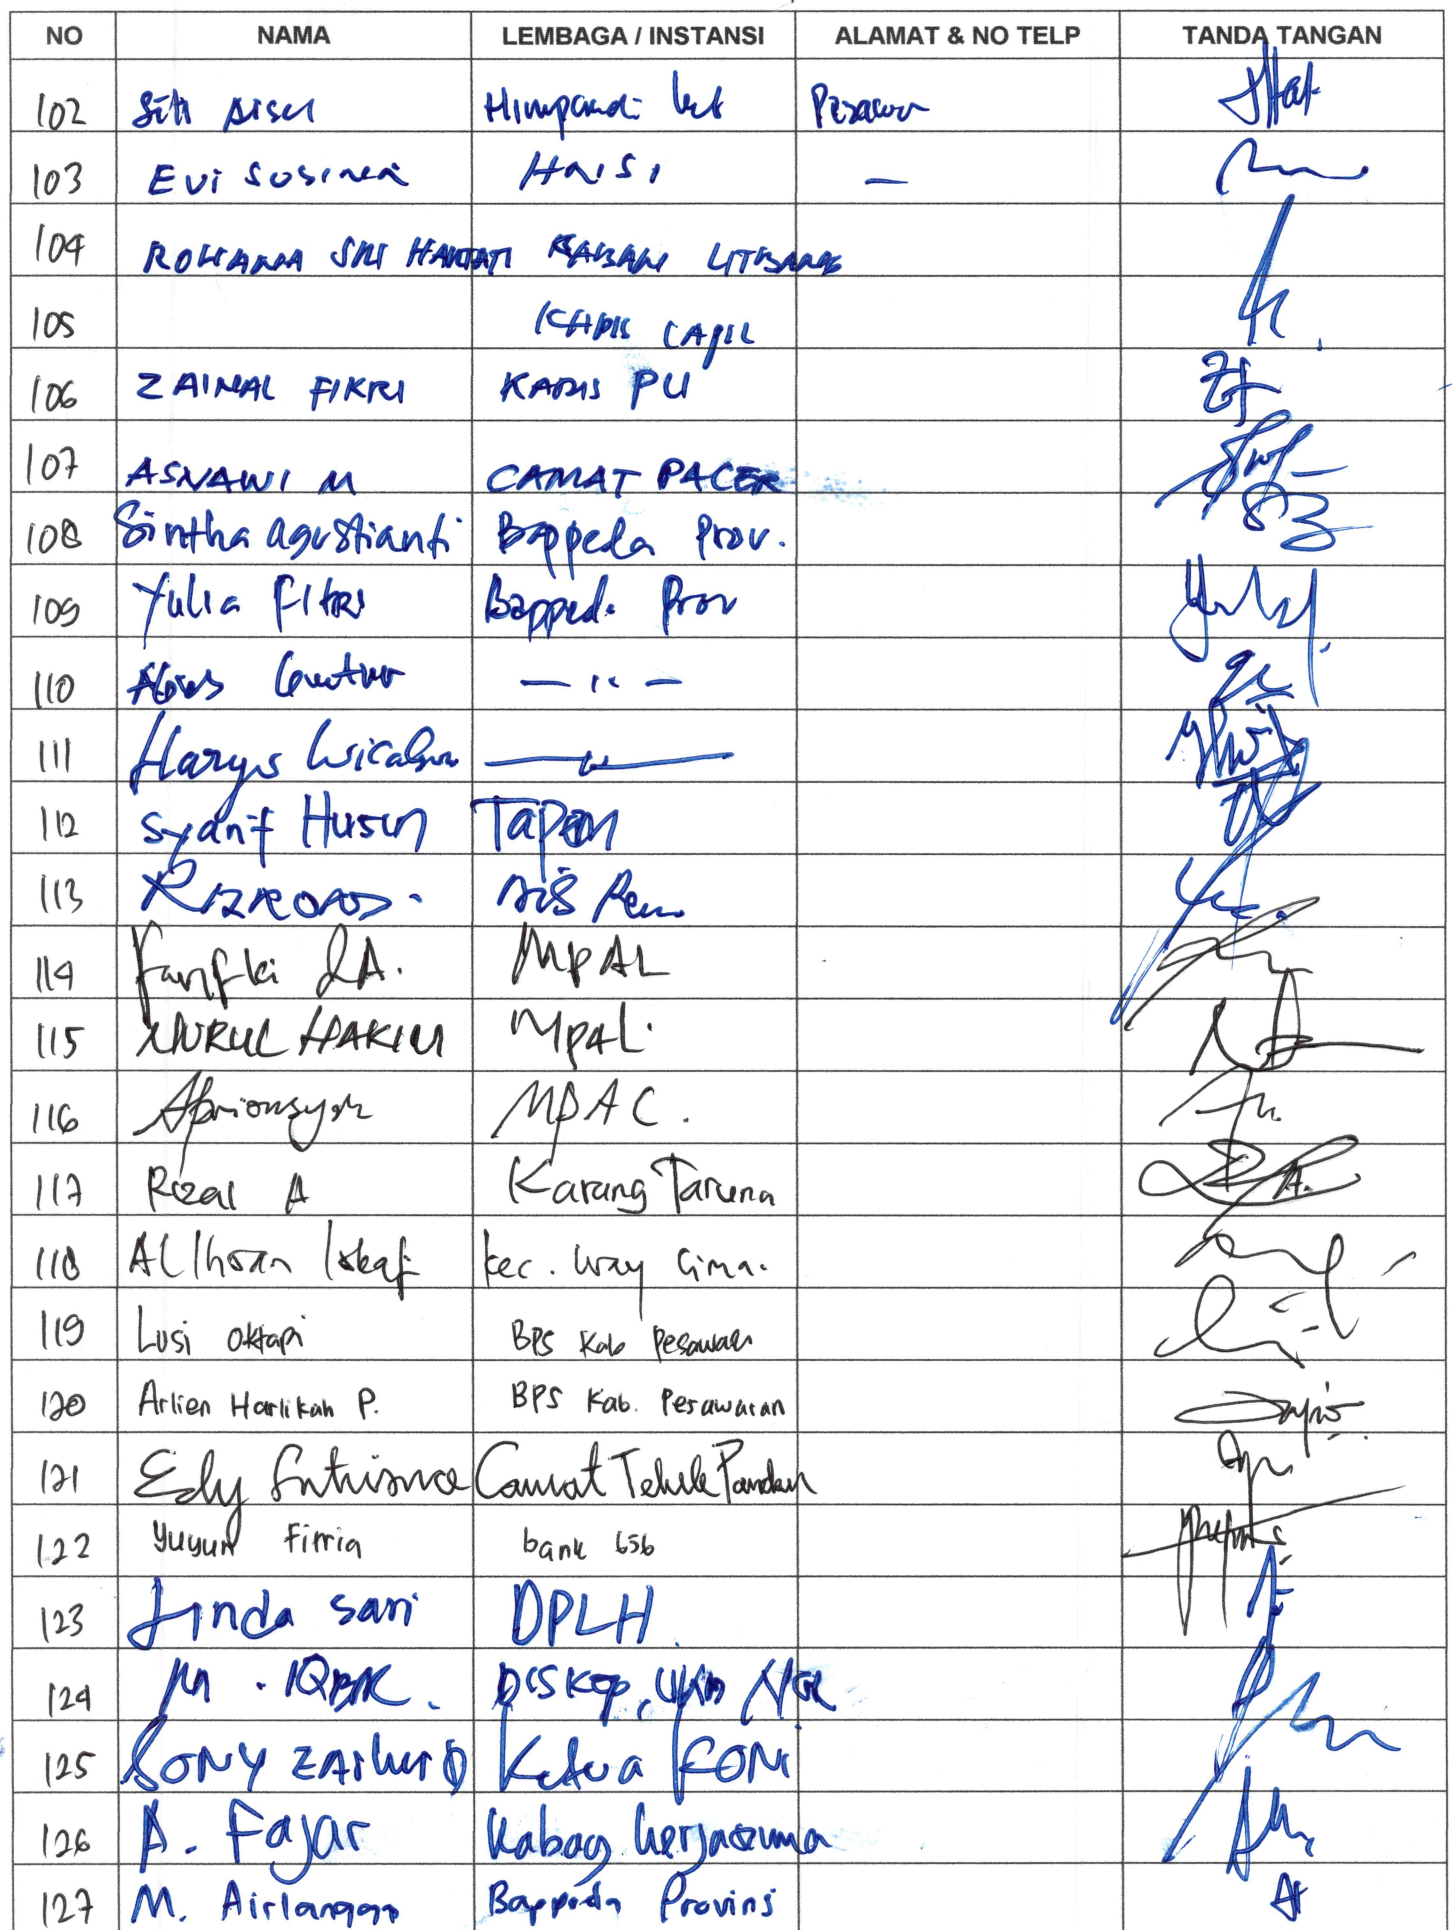 NO NAMA LEMBAGA / INSTANSI ALAMAT & NO TELP TANDA TANGAN
102 Siti Aisah Himpaudi
103 Evi Susina
104 ROHANNA SRI HARTATI KABAN LITBANG
105 KADIS CAPIL
106 ZAINAL FIKRI KADIS PU
107 ASNAWI M CAMAT PACER
108 Sintha Agustianti Bappeda Prov.
109 Yulia Fitri Bappeda Prov
110 Agus — " —
111 Harys Wicaksono — " —
112 Syarif Husin TAPEM
113
114 MPAL
115 NURUL HAKIM MPAL.
116 Apriansyah MPAL.
117 Rizal A Karang Taruna
118 Al Ihsan Kec. Way Lima.
119 Lusi Oktapi BPS Kab Pesawaran
120 Arlien Harlikah P. BPS Kab. Pesawaran
121 Edy Sutrisno Camat Teluk Pandan
122 Yuyun Fitria bank
123 Linda Sari DPLH
124 M. IQBAL.
125 SONY Ketua KONI
126 A. Fajar Kabag Kerjasama
127 M. Airlangga Bappeda Provinsi